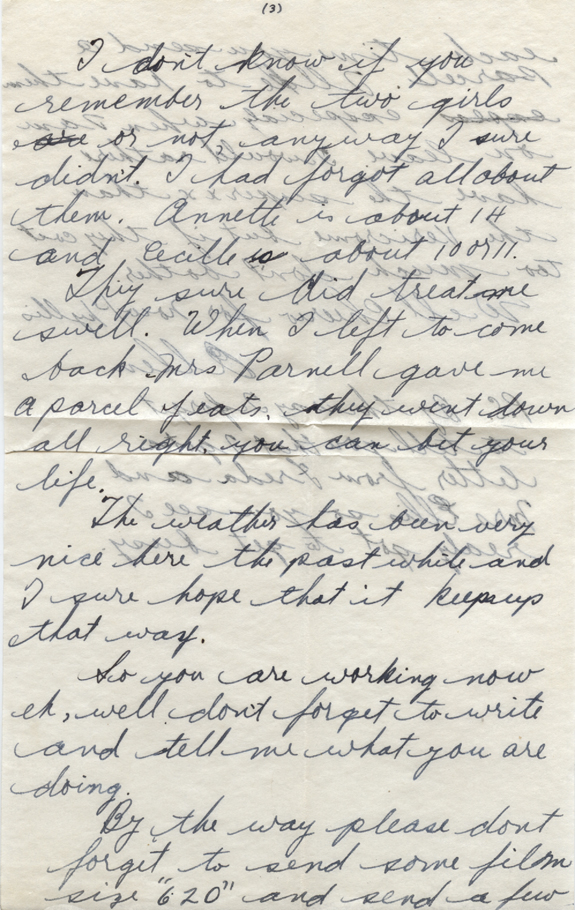 (3)
I don't know if you
remember the two girls
are or not, anyway I sure
didn't. I had forgot all about
them. Annette is about 14
and Cecille is about 10 or 11.
They sure did treat me
swell. When I left to come
back Mrs Parnell gave me
a parcel of eats, they went down
all right, you can bet your
life.
The weather has been very
nice here the past while and
I sure hope that it keeps up
that way.
So you are working now
eh, well don't forget to write
and tell me what you are
doing.
By the way please dont
forget to send some film
size "620" and send a few